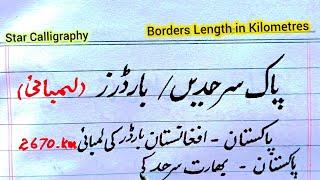 Star Calligraphy
Borders Length in Kilometres
پاک سرحدیں / بارڈرز (لمبائی)
پاکستان - افغانستان بارڈر کی لمبائی 2670.km
پاکستان - بھارت سرحد کی